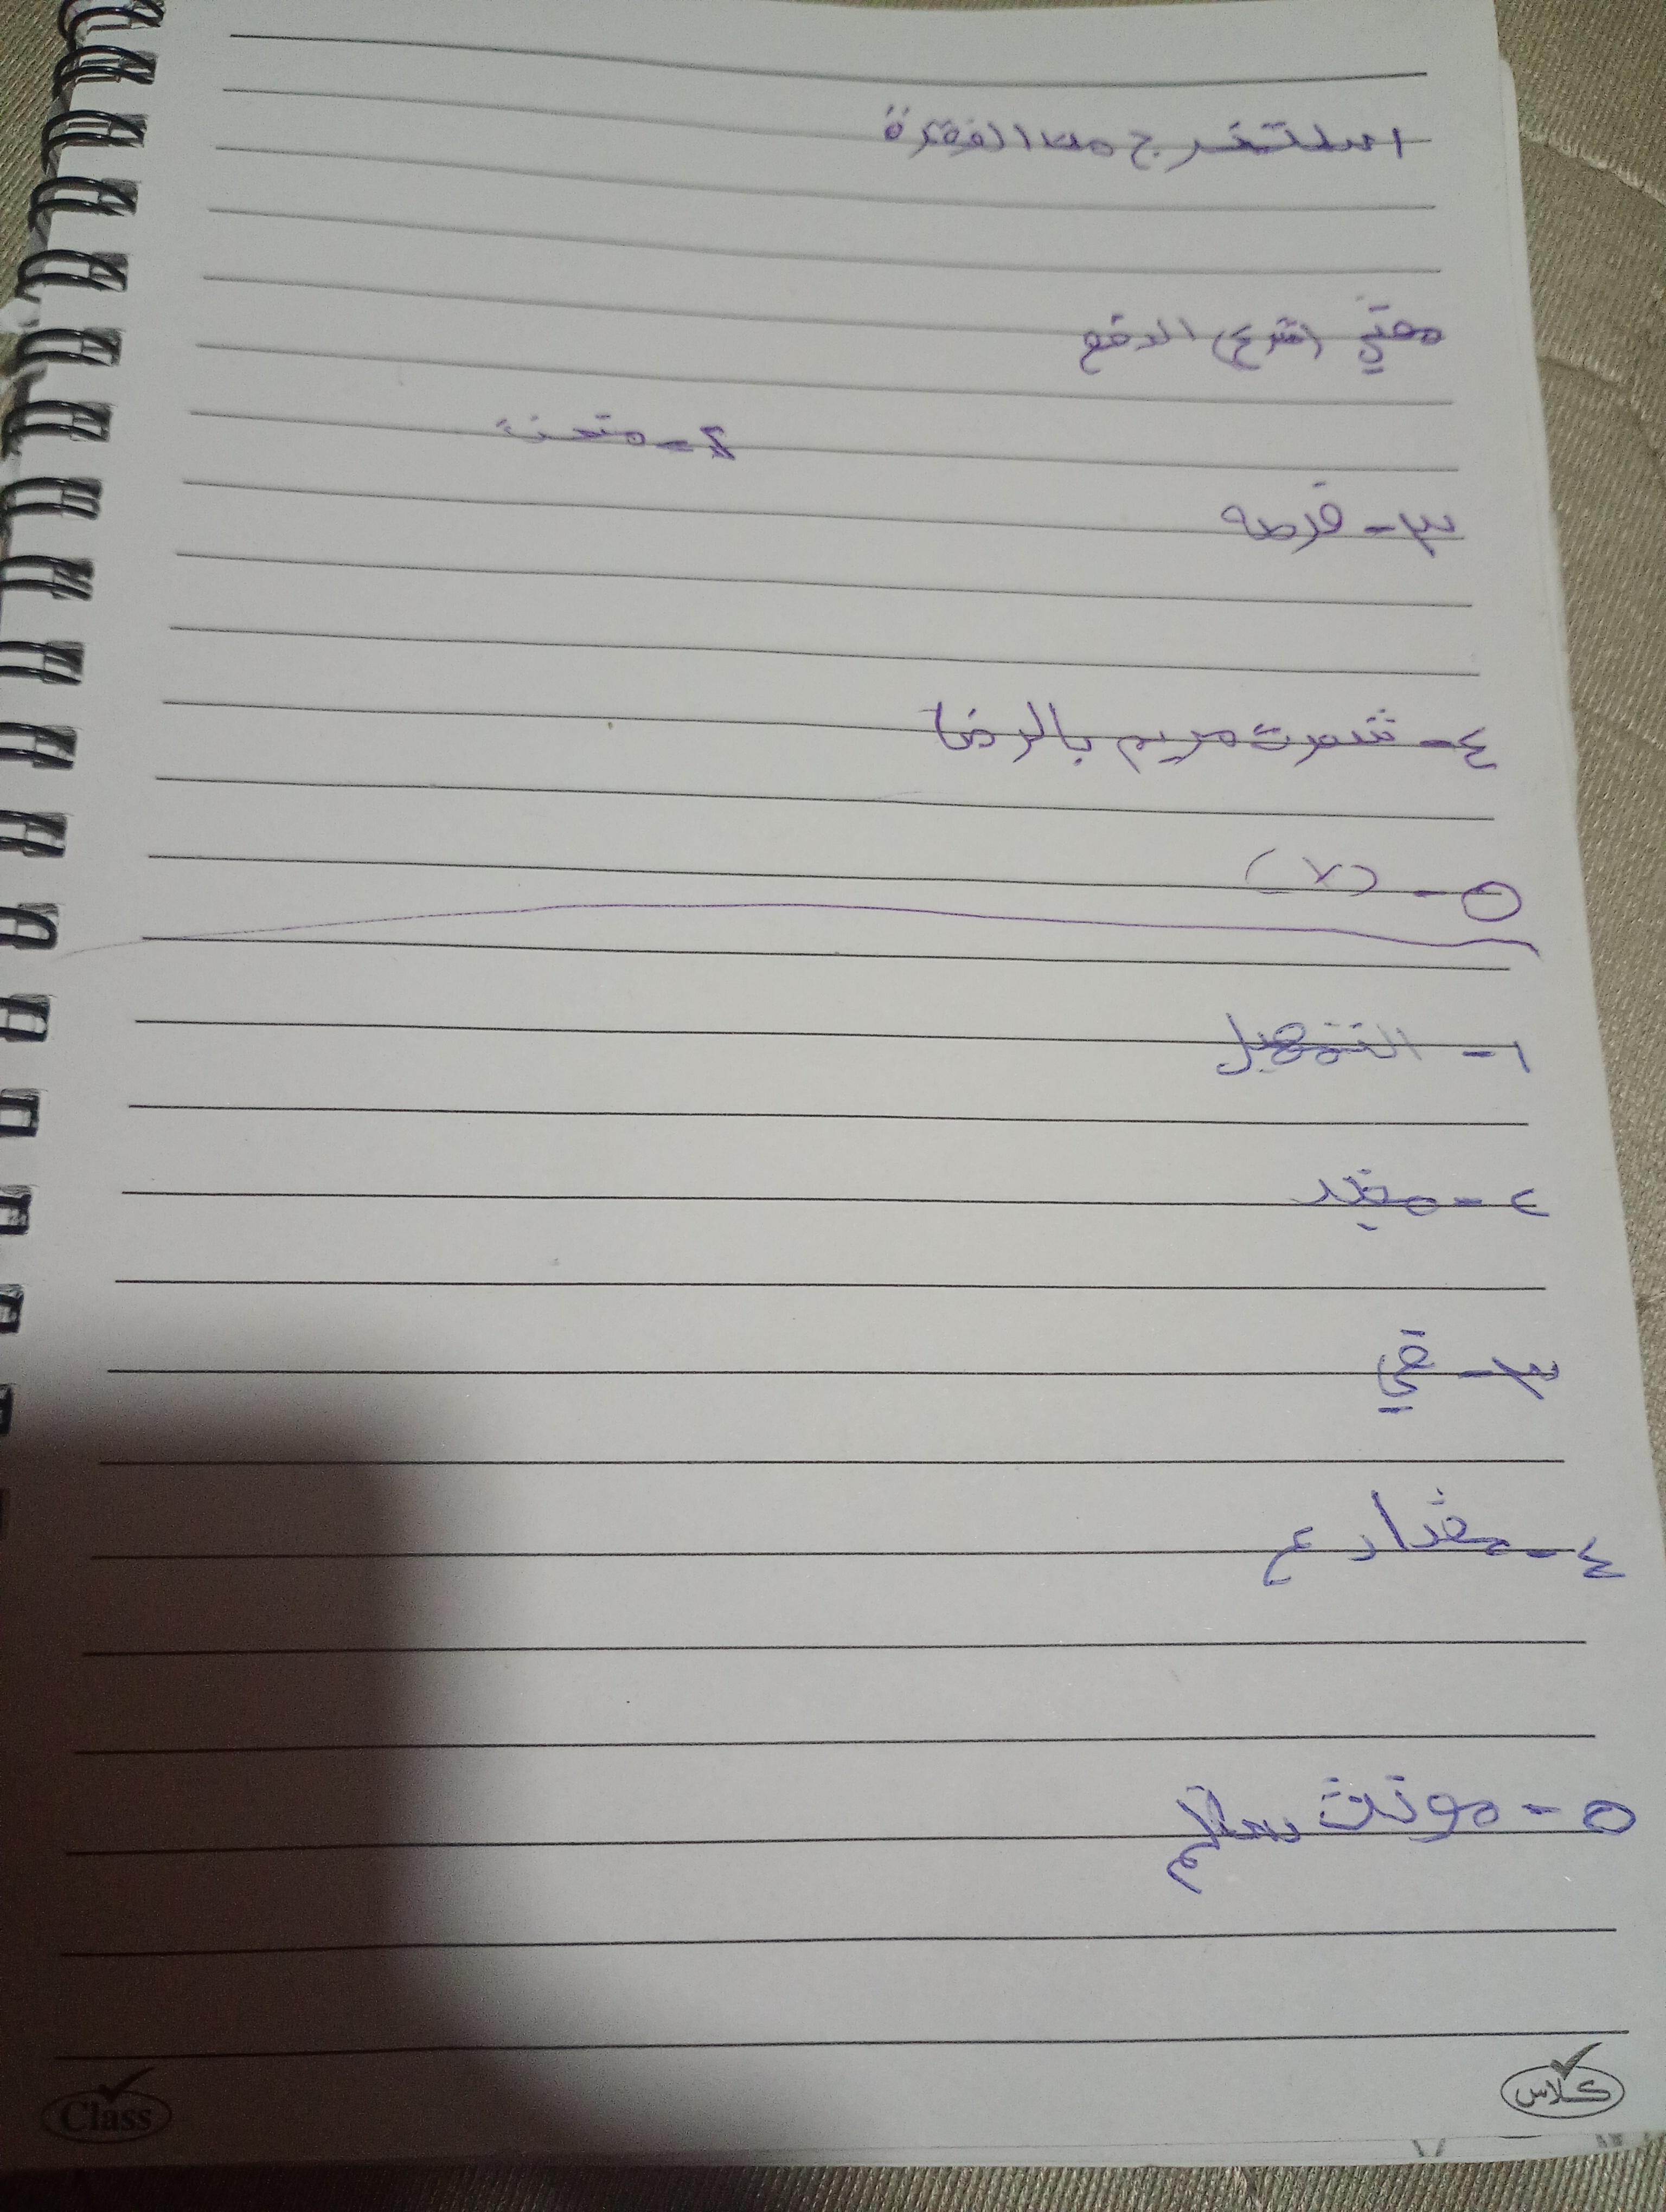 استخرج من الفقرة
معني (اقترع) الدفع
٢- متعبة
٣- فرصه
٤- شعرت مريم بالرضا
٥- (٧)
١- التمهيل
٢- مفيد
٣- في
٤- مضارع
٥- مونث سالم
Class كلاس